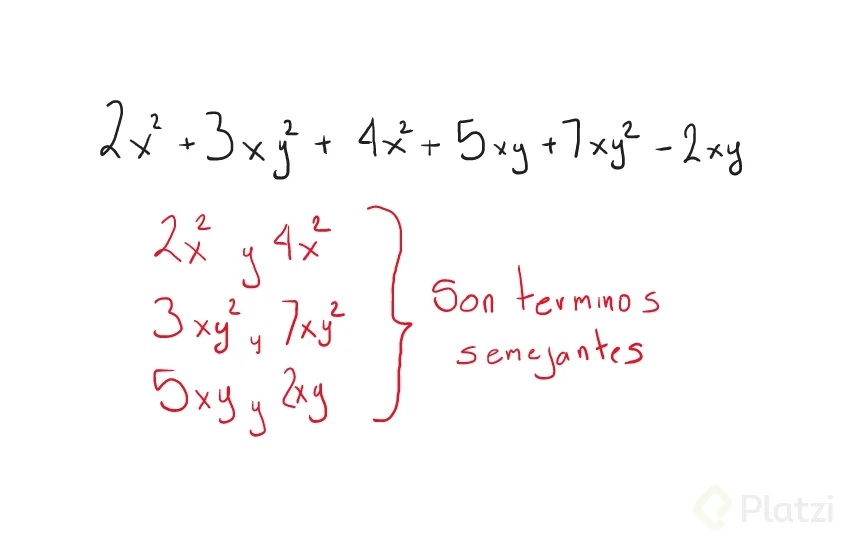 2x² + 3xy² + 4x² + 5xy + 7xy² - 2xy
2x² y 4x²
3xy² y 7xy²
5xy y 2xy
Son terminos
semejantes
Platzi